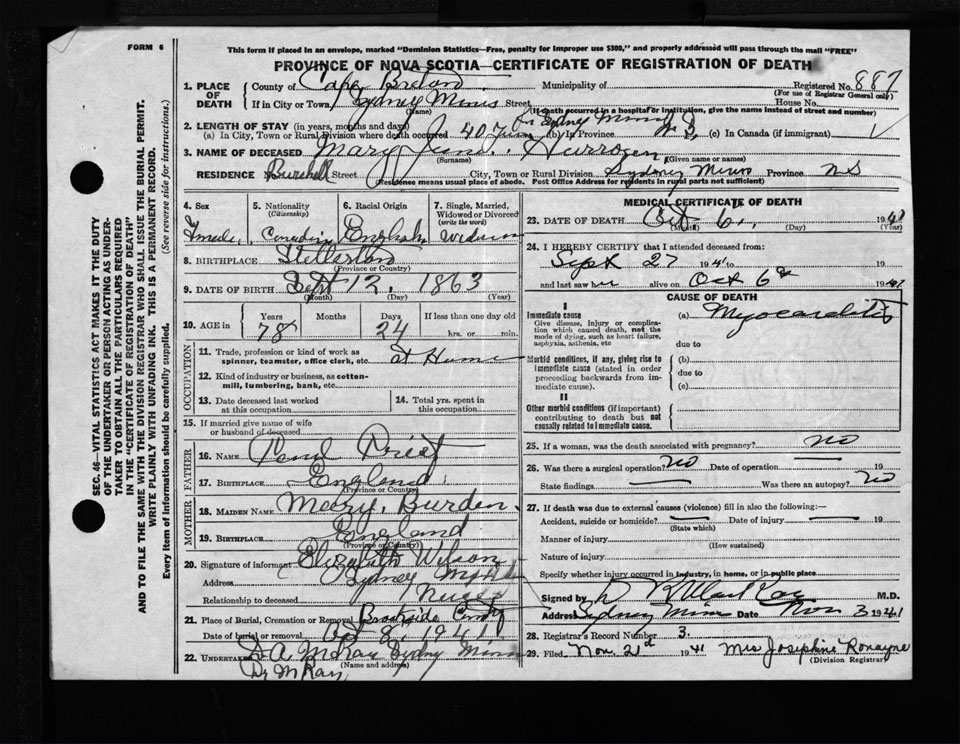 FORM 6
This form if placed in an envelope, marked "Dominion Statistics—Free, penalty for improper use $300," and properly addressed will pass through the mail "FREE"
PROVINCE OF NOVA SCOTIA—CERTIFICATE OF REGISTRATION OF DEATH
SEC. 46.—VITAL STATISTICS ACT MAKES IT THE DUTY
OF THE UNDERTAKER OR PERSON ACTING AS UNDER-
TAKER TO OBTAIN ALL THE PARTICULARS REQUIRED
IN THE "CERTIFICATE OF REGISTRATION OF DEATH"
AND TO FILE THE SAME WITH THE DIVISION REGISTRAR WHO SHALL ISSUE THE BURIAL PERMIT.
WRITE PLAINLY WITH UNFADING INK. THIS IS A PERMANENT RECORD.
Every item of information should be carefully supplied. (See reverse side for instructions.)
1. PLACE OF DEATH County of Cape Breton Municipality of Registered No. 887
(For use of Registrar General only)
If in City or Town Sydney Mines Street House No.
(Name) (If death occurred in a hospital or institution, give the name instead of street and number)
2. LENGTH OF STAY (in years, months and days)
(a) In City, Town or Rural Division where death occurred 40 years Sydney Mines (b) In Province N.S. (c) In Canada (if immigrant)
3. NAME OF DECEASED Mary Jane
(Surname) (Given name or names)
RESIDENCE Street City, Town or Rural Division Sydney Mines Province NS
(Residence means usual place of abode. Post Office Address for residents in rural parts not sufficient)
4. Sex Female
5. Nationality (Citizenship) Canadian
6. Racial Origin English
7. Single, Married, Widowed or Divorced (write the word) Widow
8. BIRTHPLACE Stellarton
(Province or Country)
9. DATE OF BIRTH Sept 12, 1863
(Month) (Day) (Year)
10. AGE in Years 78 Months Days 24 If less than one day old
hrs. or min.
OCCUPATION
11. Trade, profession or kind of work as spinner, teamster, office clerk, etc. at Home
12. Kind of industry or business, as cotton-mill, lumbering, bank, etc.
13. Date deceased last worked at this occupation
14. Total yrs. spent in this occupation
15. If married give name of wife or husband of deceased
FATHER
16. NAME Paul Priest
17. BIRTHPLACE England
(Province or Country)
MOTHER
18. MAIDEN NAME Mary Burden
19. BIRTHPLACE England
(Province or Country)
20. Signature of informant Elizabeth Wilson
Address Sydney Mines
Relationship to deceased Niece
21. Place of Burial, Cremation or Removal Brookside
Date of burial or removal Oct 8, 1941
22. UNDERTAKER A McKay Sydney Mines
(Name and address)
McKay
MEDICAL CERTIFICATE OF DEATH
23. DATE OF DEATH Oct 6, 1941
(Month) (Day) (Year)
24. I HEREBY CERTIFY that I attended deceased from:
Sept 27 1941 to 19
and last saw alive on Oct 6th 1941
CAUSE OF DEATH
I
Immediate cause
Give disease, injury or complication which caused death, not the mode of dying, such as heart failure, asphyxia, asthenia, etc
(a) Myocarditis
due to
Morbid conditions, if any, giving rise to immediate cause (stated in order proceeding backwards from immediate cause).
(b)
due to
(c)
II
Other morbid conditions (if important) contributing to death but not causally related to immediate cause.
25. If a woman, was the death associated with pregnancy? no
26. Was there a surgical operation? no Date of operation 19
State findings Was there an autopsy? no
27. If death was due to external causes (violence) fill in also the following:—
Accident, suicide or homicide? Date of injury 19
(State which)
Manner of injury
(How sustained)
Nature of injury
Specify whether injury occurred in industry, in home, or in public place
Signed by M.D.
Address Sydney Mines Date Nov 3 1941
28. Registrar's Record Number 3.
29. Filed Nov. 21st 1941 Mrs Josephine Ronayne
(Division Registrar)